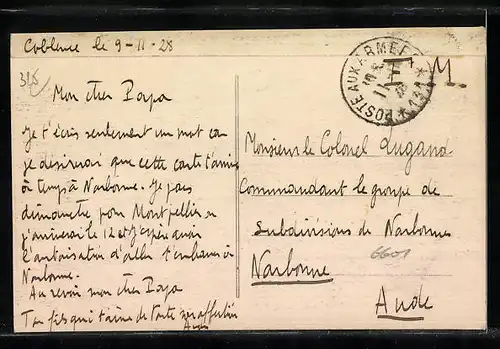 Coblence le 9-11-28
POSTE AUX ARMEES
* 131 *
F.M.
Mon cher Papa
Je t'écris seulement un mot car
je désirerai que cette carte t'arrive
à temps à Narbonne. Je pars
dimanche pour Montpellier
j'arriverai le 12 et j'espère avoir
l'autorisation d'aller t'embrasser à
Narbonne.
Au revoir mon cher Papa
Ton fils qui t'aime de toute son affection
Monsieur le Colonel Lugand
Commandant le groupe de
Subdivisions de Narbonne
6601
Narbonne
Aude